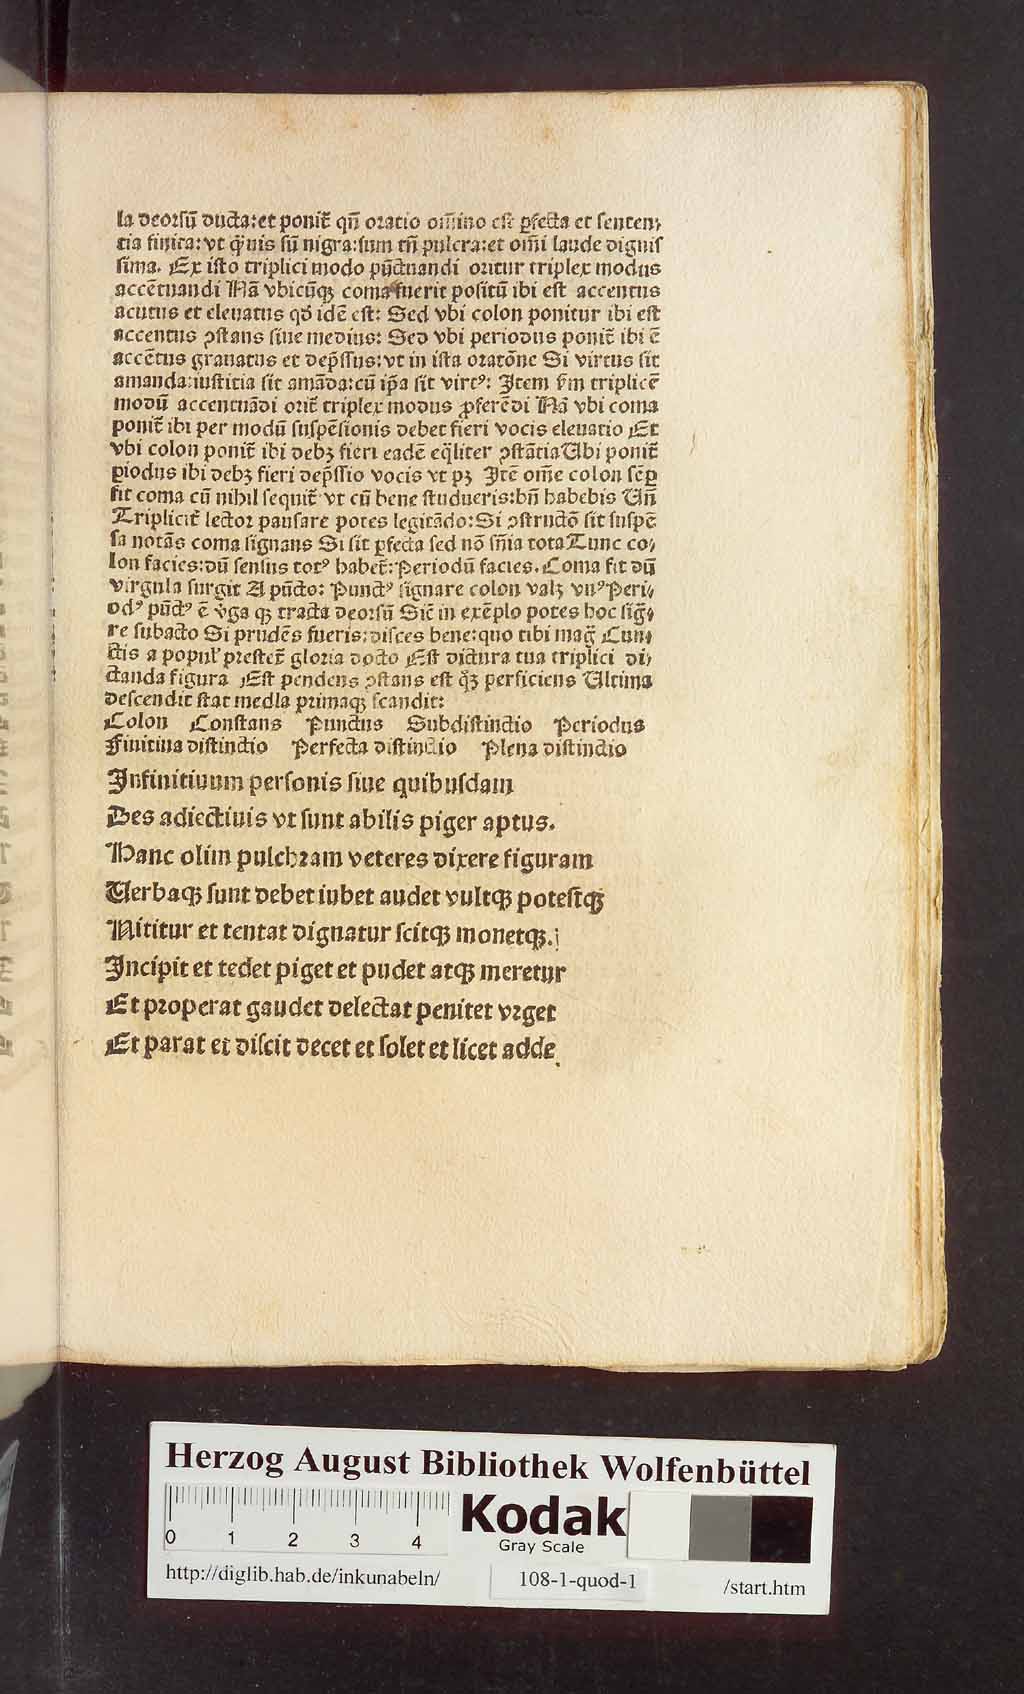 la deorsū ducta: et poniṫ qn̄ oratio om̄ino est ꝑfecta et senten,
tia finita: vt q̄uis sū nigra: sum tn̄ pulcra: et om̄i laude dignis
sima. Ex isto triplici modo pūctuandi oritur triplex modus
accētuandi Nā vbicūqꝫ coma fuerit positū ibi est accentus
acutus et eleuatus qd̓ idē est: Sed vbi colon ponitur ibi est
accentus ꝯstans siue medius: Sed vbi periodus poniṫ ibi ē
accētus grauatus et dep̄ssus: vt in ista oratōne Si virtus sit
amanda: iustitia sit amāda: cū ip̄a sit virtꝰ: Item s̄m triplicē
modū accentuādi oriṫ triplex modus ꝓferēdi Nā vbi coma
poniṫ ibi per modū suspēsionis debet fieri vocis eleuatio Et
vbi colon poniṫ ibi debꝫ fieri eadē eq̄liter ꝯstātia Ubi poniṫ
ꝑiodus ibi debꝫ fieri dep̄ssio vocis vt pꝫ Itē om̄e colon sēꝑ
fit coma cū nihil sequiṫ vt cū bene studueris: bn̄ habebis Un̄
Tripliciṫ lector pausare potes legitādo: Si ꝯstructō sit suspē
sa notās coma signans Si sit ꝑfecta sed nō sn̄ia tota Tunc co,
lon facies: dū sensus totꝰ habeṫ: Periodū facies. Coma fit dū
virgula surgit A pūcto: Punctꝰ signare colon valꝫ vnꝰ Peri,
odꝰ pūctꝰ ē v̓ga qꝫ tracta deorsū Sic̄ in exēplo potes hoc sig̓,
re subacto Si prudēs fueris: disces bene: quo tibi mag̓ Cun,
ctis a popul̓ presteṫ gloria docto Est dictura tua triplici di,
ctanda figura Est pendens ꝯstans est qꝫ perficiens Ultima
descendit stat media primaqꝫ scandit:
Colon Constans Punctus Subdistinctio Periodus
Finitiua distinctio Perfecta distinctio Plena distinctio
Infinitiuum personis siue quibusdam
Des adiectiuis vt sunt abilis piger aptus.
Hanc olim pulchram veteres dixere figuram
Uerbaqꝫ sunt debet iubet audet vultqꝫ potestqꝫ
Nititur et tentat dignatur scitqꝫ monetqꝫ.
Incipit et tedet piget et pudet atqꝫ meretur
Et properat gaudet delectat penitet vrget
Et parat et discit decet et solet et licet adde
Herzog August Bibliothek Wolfenbüttel
0 1 2 3 4
Kodak
Gray Scale
http://diglib.hab.de/inkunabeln/ 108-1-quod-1 /start.htm